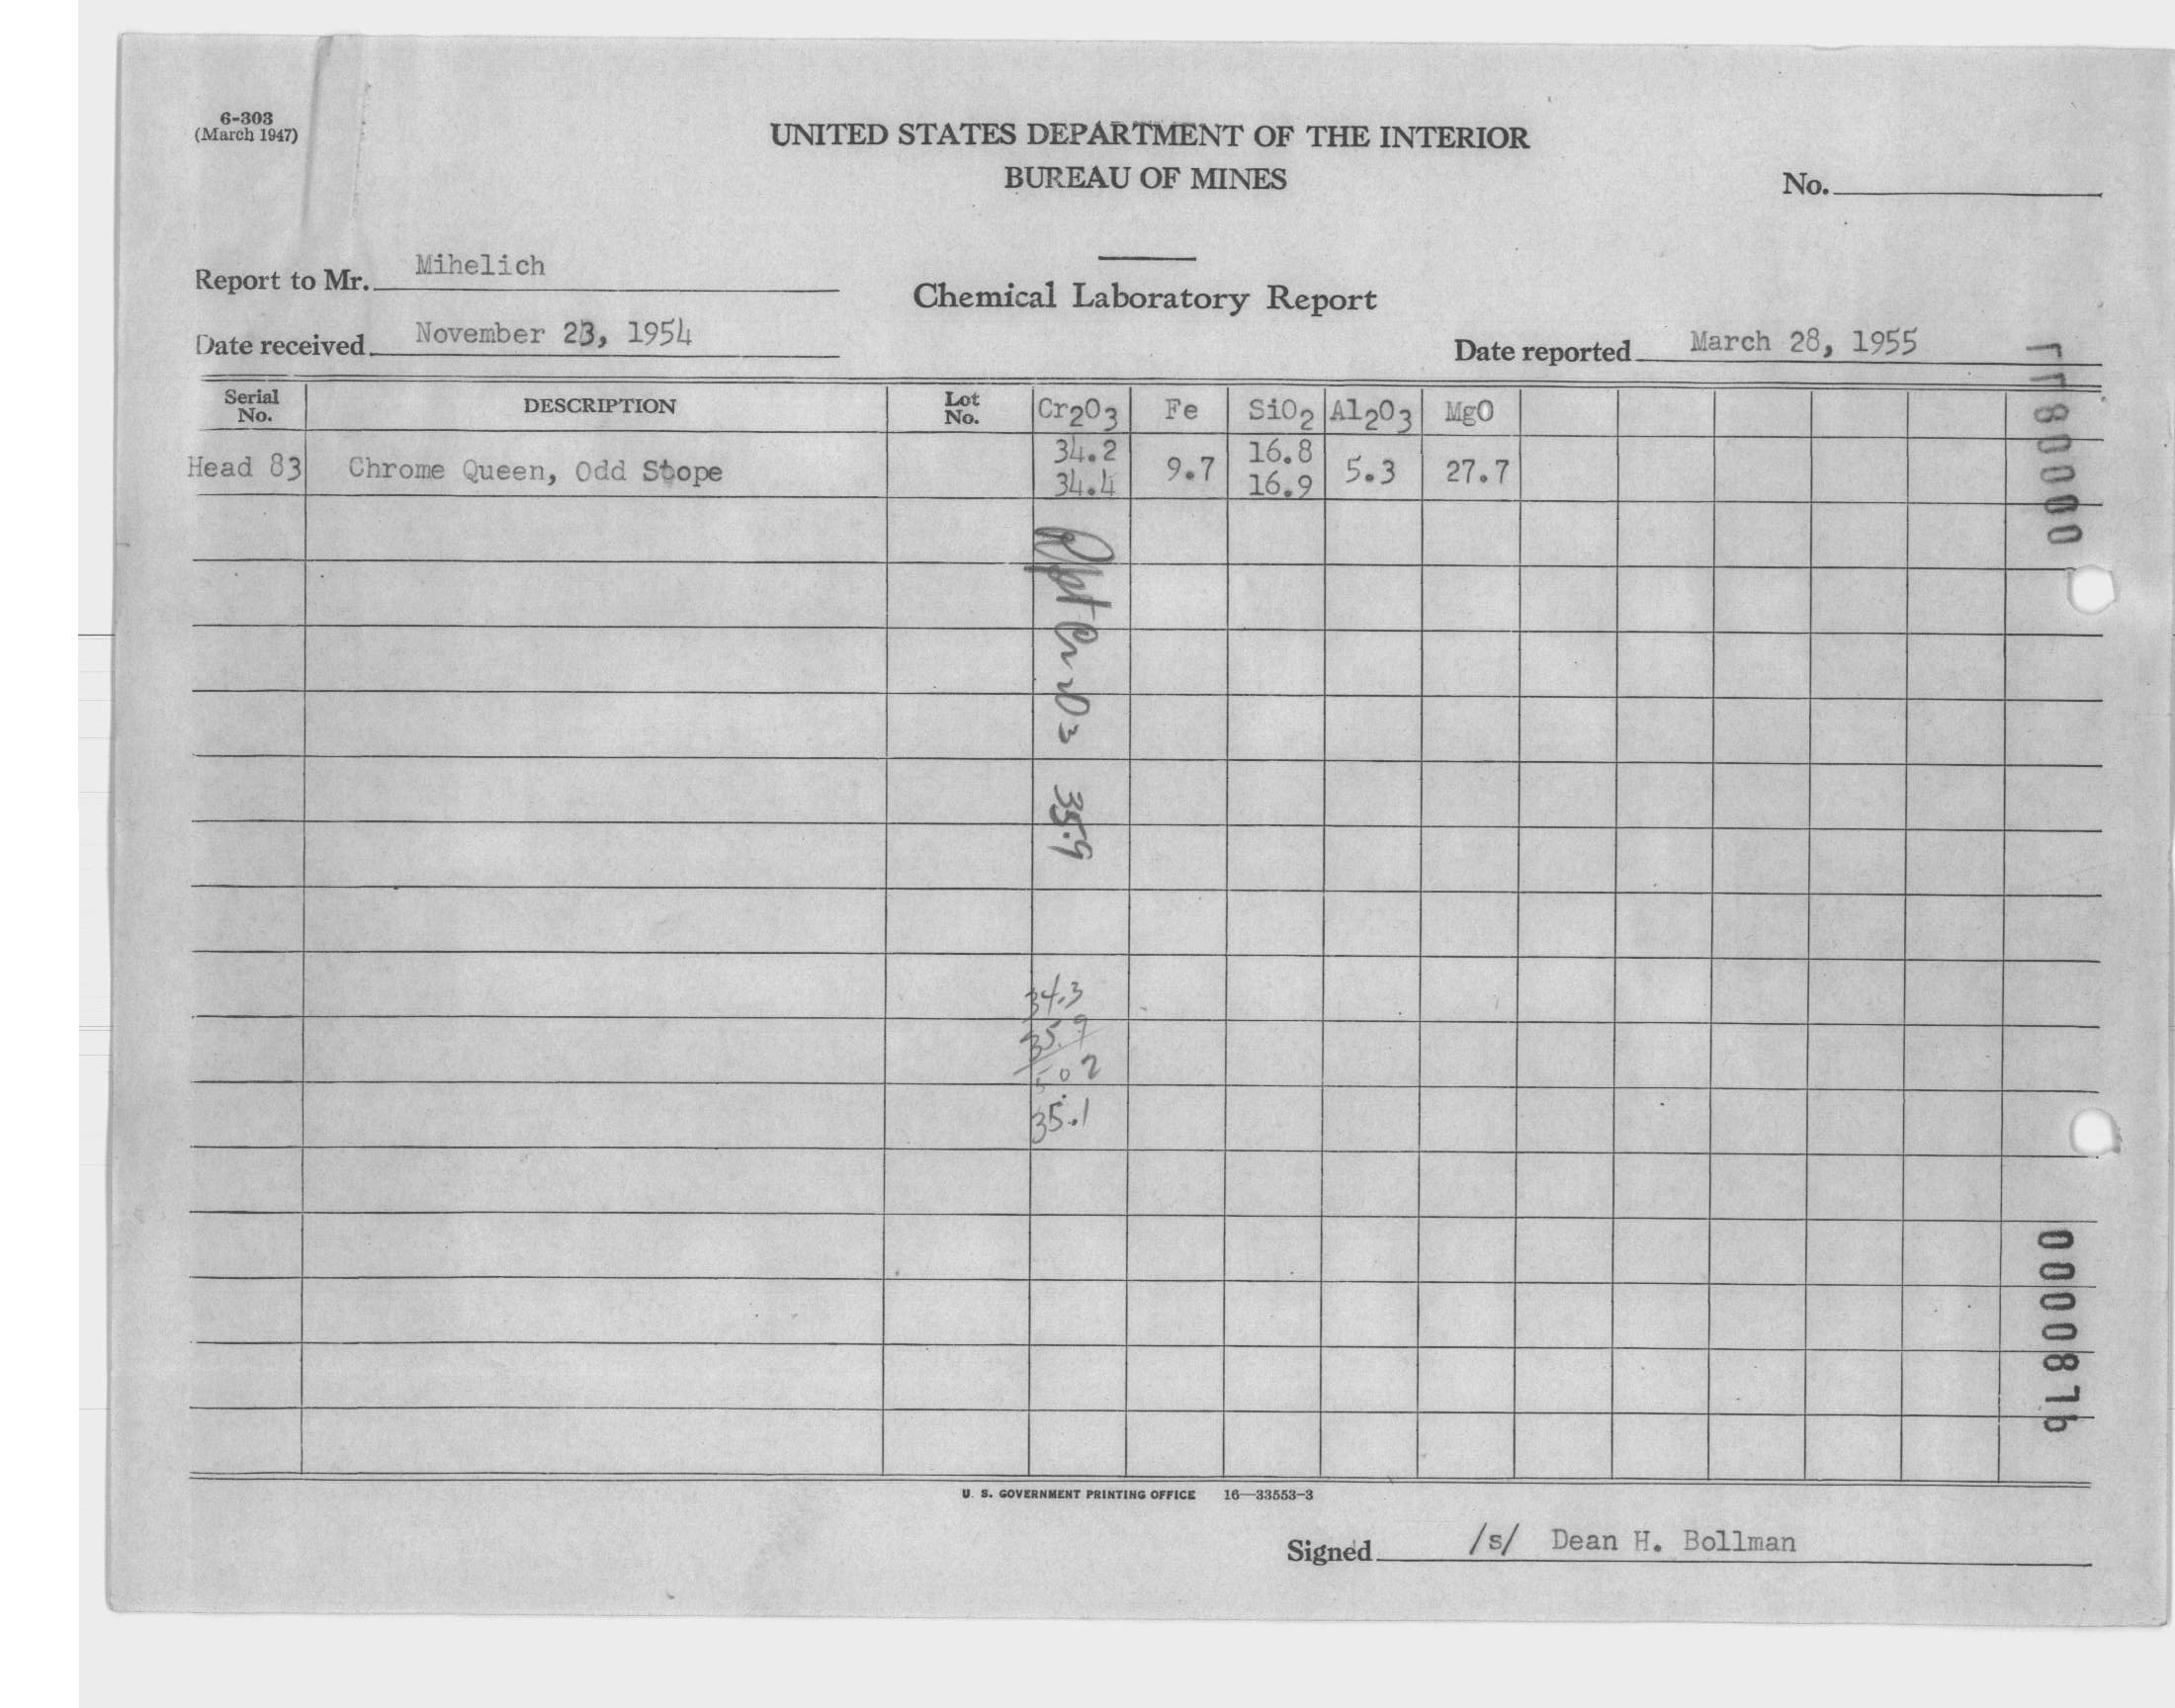 6-303
(March 1947)
UNITED STATES DEPARTMENT OF THE INTERIOR
BUREAU OF MINES
No.
Report to Mr. Mihelich
Chemical Laboratory Report
Date received November 23, 1954
Date reported March 28, 1955
Serial No. DESCRIPTION Lot No. Cr2O3 Fe SiO2 Al2O3 MgO
Head 83 Chrome Queen, Odd Stope 34.2 34.4 9.7 16.8 16.9 5.3 27.7
Rpt Cr2O3 35.9
34.3
35.9
35.1
0000877
0000876
U. S. GOVERNMENT PRINTING OFFICE 16—33553-3
Signed /s/ Dean H. Bollman